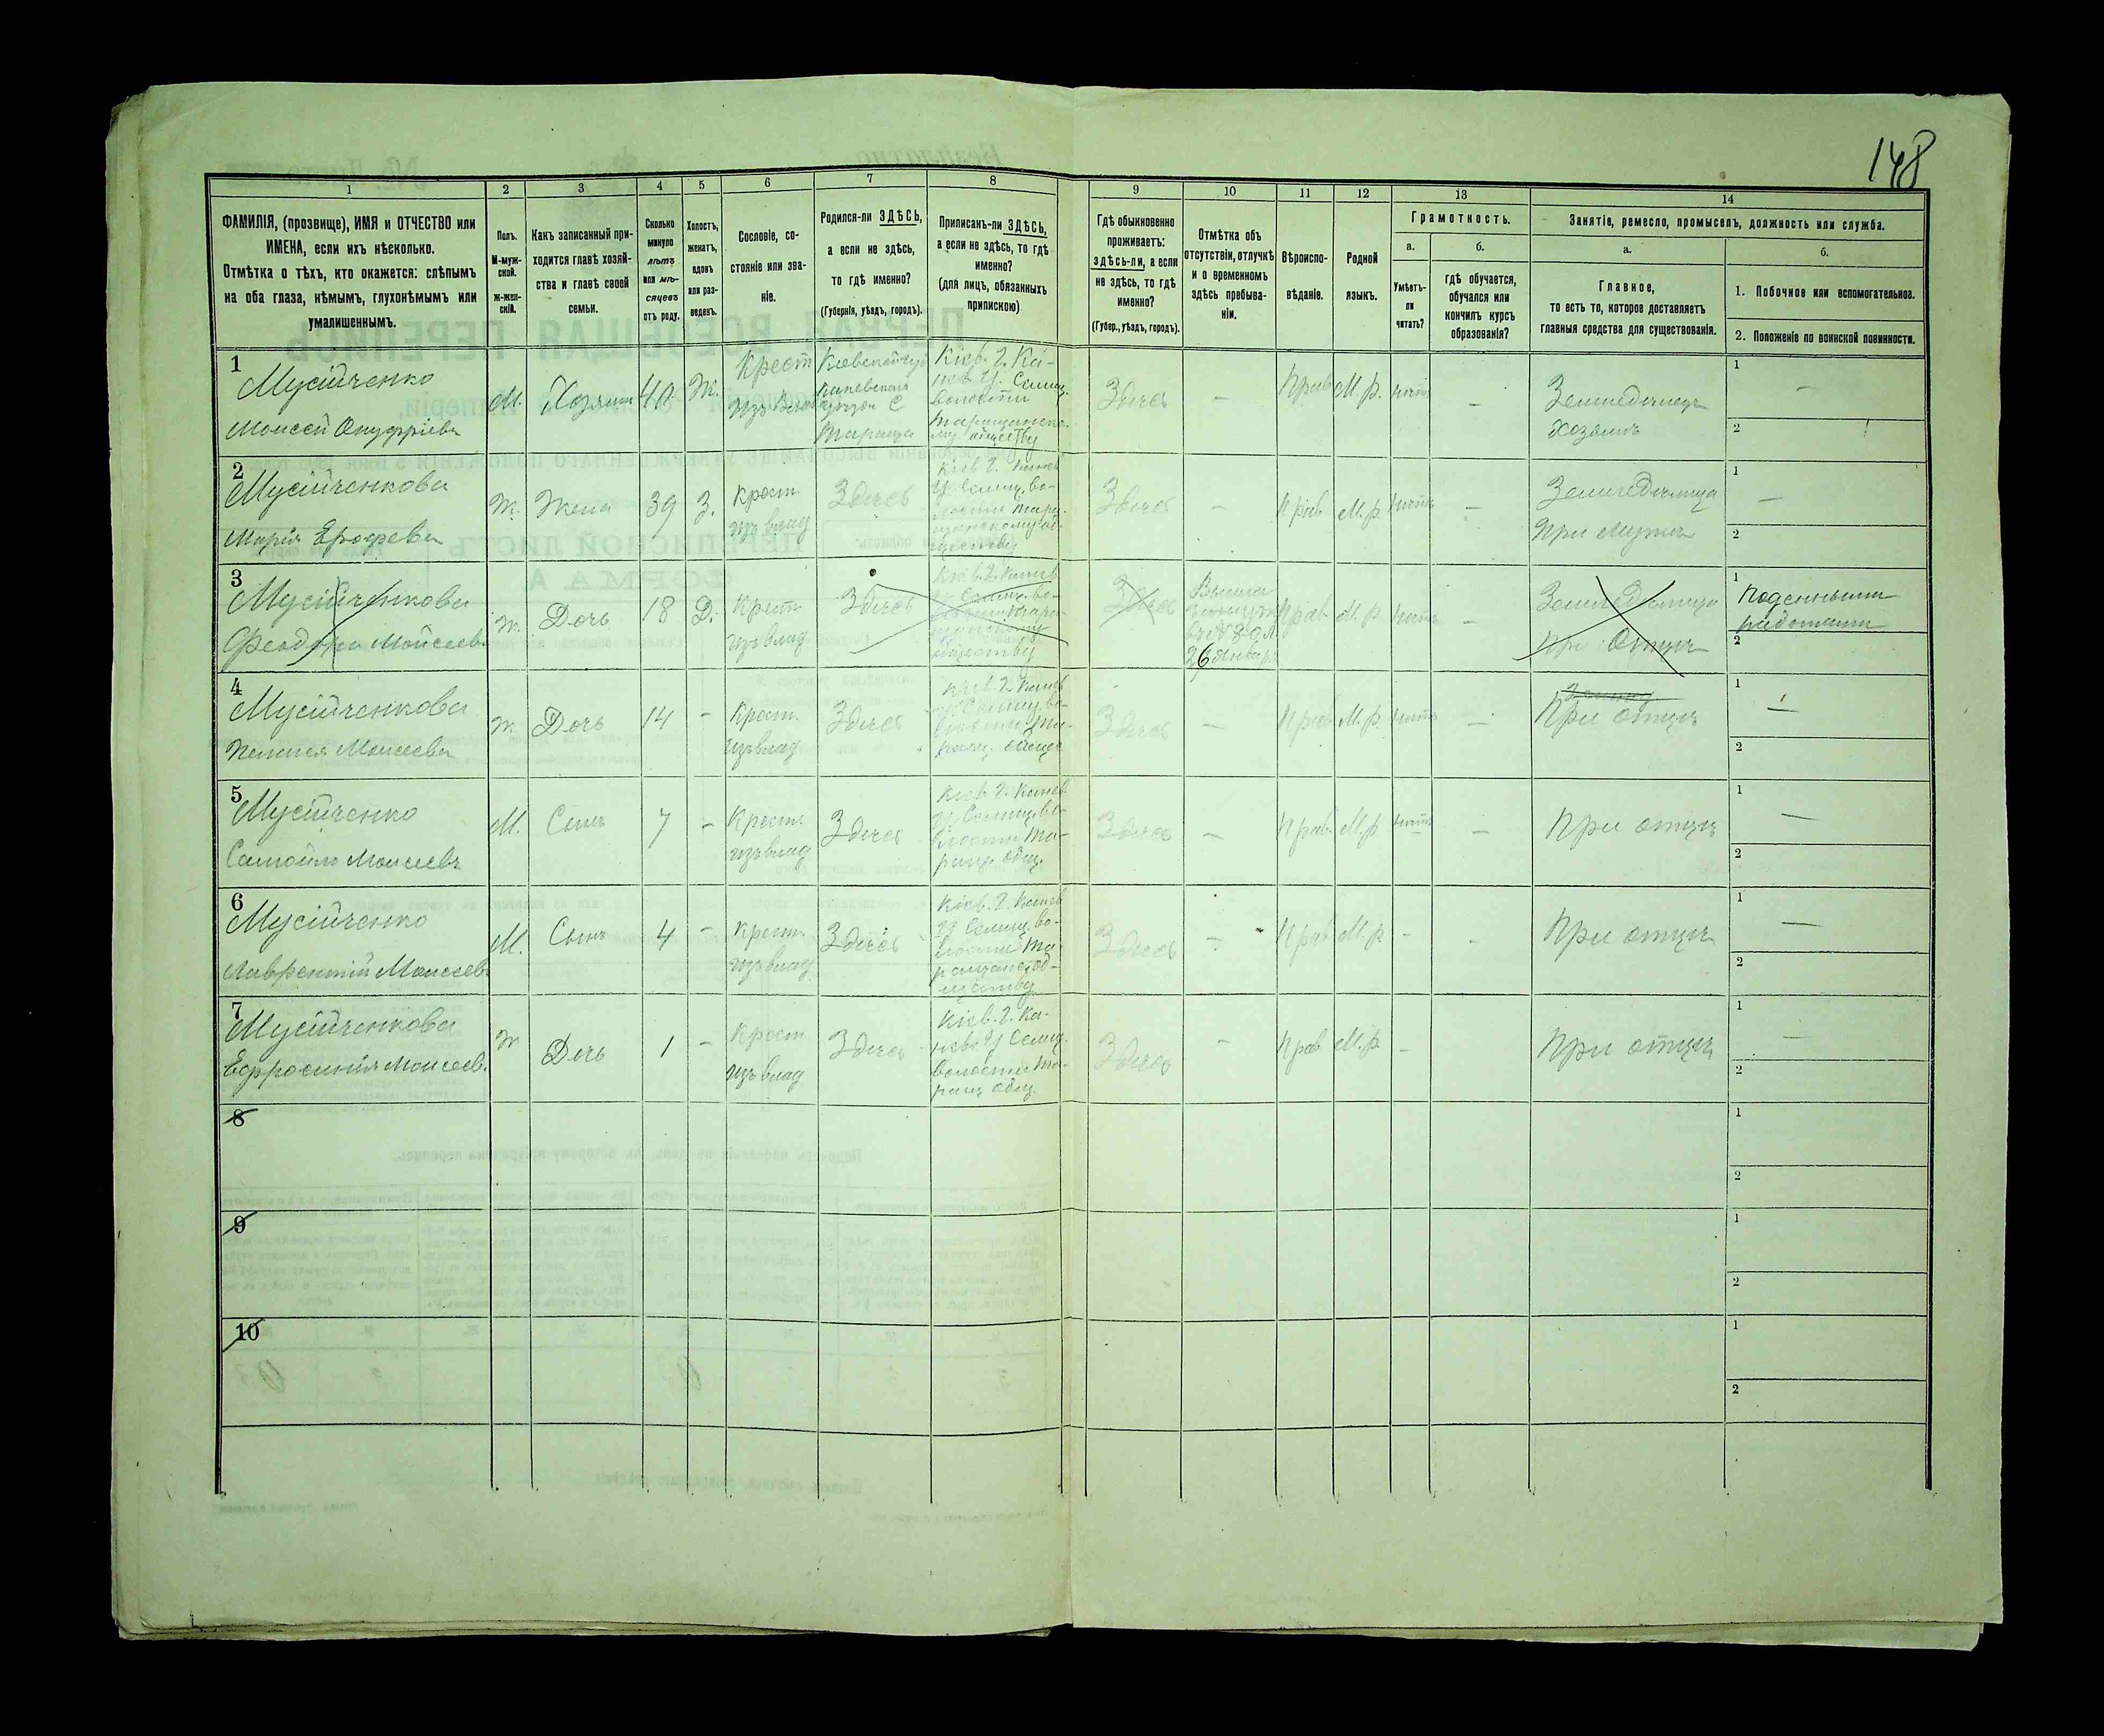 148
1 2 3 4 5 6 7 8 9 10 11 12 13 14
ФАМИЛІЯ, (прозвище), ИМЯ и ОТЧЕСТВО или
ИМЕНА, если ихъ нѣсколько.
Отмѣтка о тѣхъ, кто окажется: слѣпымъ
на оба глаза, нѣмымъ, глухонѣмымъ или
умалишеннымъ.
Полъ.
М-муж-
ской.
ж-жен-
скій.
Какъ записанный при-
ходится главѣ хозяй-
ства и главѣ своей
семьи.
Сколько
минуло
лѣтъ
или мѣ-
сяцевъ
отъ роду.
Холостъ,
женатъ,
вдовъ
или раз-
веденъ.
Сословіе, со-
стояніе или зва-
ніе.
Родился-ли ЗДѢСЬ,
а если не здѣсь,
то гдѣ именно?
(Губернія, уѣздъ, городъ).
Приписанъ-ли ЗДѢСЬ,
а если не здѣсь, то гдѣ
именно?
(для лицъ, обязанныхъ
припискою)
Гдѣ обыкновенно
проживаетъ:
здѣсь-ли, а если
не здѣсь, то гдѣ
именно?
(Губер., уѣздъ, городъ).
Отмѣтка объ
отсутствіи, отлучкѣ
и о временномъ
здѣсь пребыва-
ніи.
Вѣроиспо-
вѣданіе.
Родной
языкъ.
Грамотность.
а.
Умѣетъ-
ли
читать?
б.
гдѣ обучается,
обучался или
кончилъ курсъ
образованія?
Занятіе, ремесло, промыселъ, должность или служба.
а.
Главное,
то есть то, которое доставляетъ
главныя средства для существованія.
б.
1. Побочное или вспомогательное.
2. Положеніе по воинской повинности.
1
Мусійченко
Моисей Онуфріевъ
М. Хозяинъ 40 Ж.
Крест
Кіев. г. Ка-
нев. у. Селищ.
волости
обществу
Здесь - Прав М.р.
Земледелецъ
Хозяинъ
1 -
2
2
Мусійченкова
Марія Ерофеева
Ж. Жена 39 З.
Крест
изъ влад
Здесь
Здесь - Прав М.р. -
Земледелица
При Мужѣ
1 -
2
3
Мусійченкова
Феодора Моисеев.
Ж. Дочь 18 Д.
Крест
изъ влад
Здесь
обществу
Здесь
26 Января
Прав М.р. -
Земледелица
При Отцѣ
1 Поденными
работами
2
4
Мусійченкова
Пелагея Моисеева
Ж Дочь 14 -
Крест.
изъ влад
Здесь
Здесь - Прав М.р. -
При отцѣ
1 -
2
5
Мусійченко
Самойло Моисеевъ
М. Сынъ 7 -
Крест.
изъ влад
Здесь
Кіев. г. Канев
у Селищ. во-
лости Та-
ращ. общ.
Здесь - Прав. М.р -
При отцѣ
1 -
2
6
Мусійченко
Лаврентій Моисеевъ
М. Сынъ 4 -
Крест.
изъ влад
Здесь
Кіев. г. Канев
у Селищ. во-
лости Та-
обществу
Здесь - Прав М.р. - -
При отцѣ
1 -
2
7
Мусійченкова
Ефросинія Моисеев.
Ж Дочь 1 -
Крест
изъ влад
Здесь
Кіев. г. Ка-
нев. у Селищ.
волости Та-
ращ общ.
Здесь - Прав М.р. -
При отцѣ
1 -
2
8
1
2
9
1
2
10
1
2